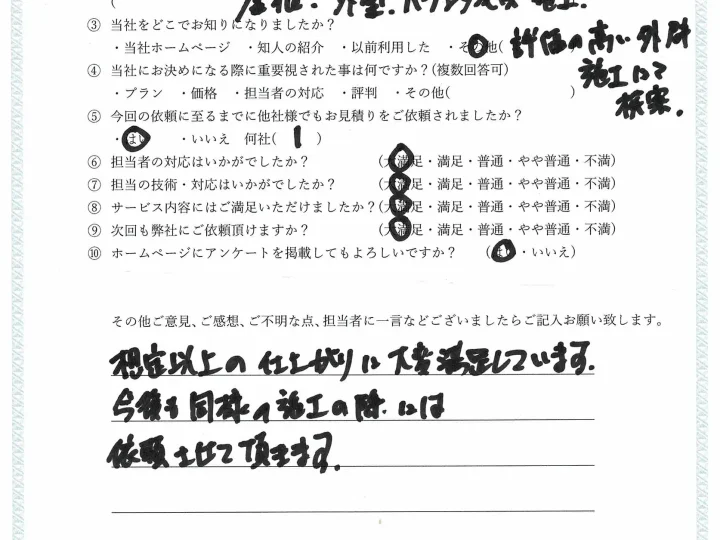 屋根・外壁.
③ 当社をどこでお知りになりましたか?
・当社ホームページ ・知人の紹介 ・以前利用した ・その他( 評価の高い外壁
施工にて
検索.
④ 当社にお決めになる際に重要視された事は何ですか?(複数回答可)
・プラン ・価格 ・担当者の対応 ・評判 ・その他( )
⑤ 今回の依頼に至るまでに他社様でもお見積りをご依頼されましたか?
・はい ・いいえ 何社( 1 )
⑥ 担当者の対応はいかがでしたか? (大満足・満足・普通・やや普通・不満)
⑦ 担当の技術・対応はいかがでしたか? (大満足・満足・普通・やや普通・不満)
⑧ サービス内容にはご満足いただけましたか?(大満足・満足・普通・やや普通・不満)
⑨ 次回も弊社にご依頼頂けますか? (大満足・満足・普通・やや普通・不満)
⑩ ホームページにアンケートを掲載してもよろしいですか? (はい・いいえ)
その他ご意見、ご感想、ご不明な点、担当者に一言などございましたらご記入お願い致します。
想定以上の仕上がりに大変満足しています.
今後も同様の施工の際には
依頼させて頂きます.